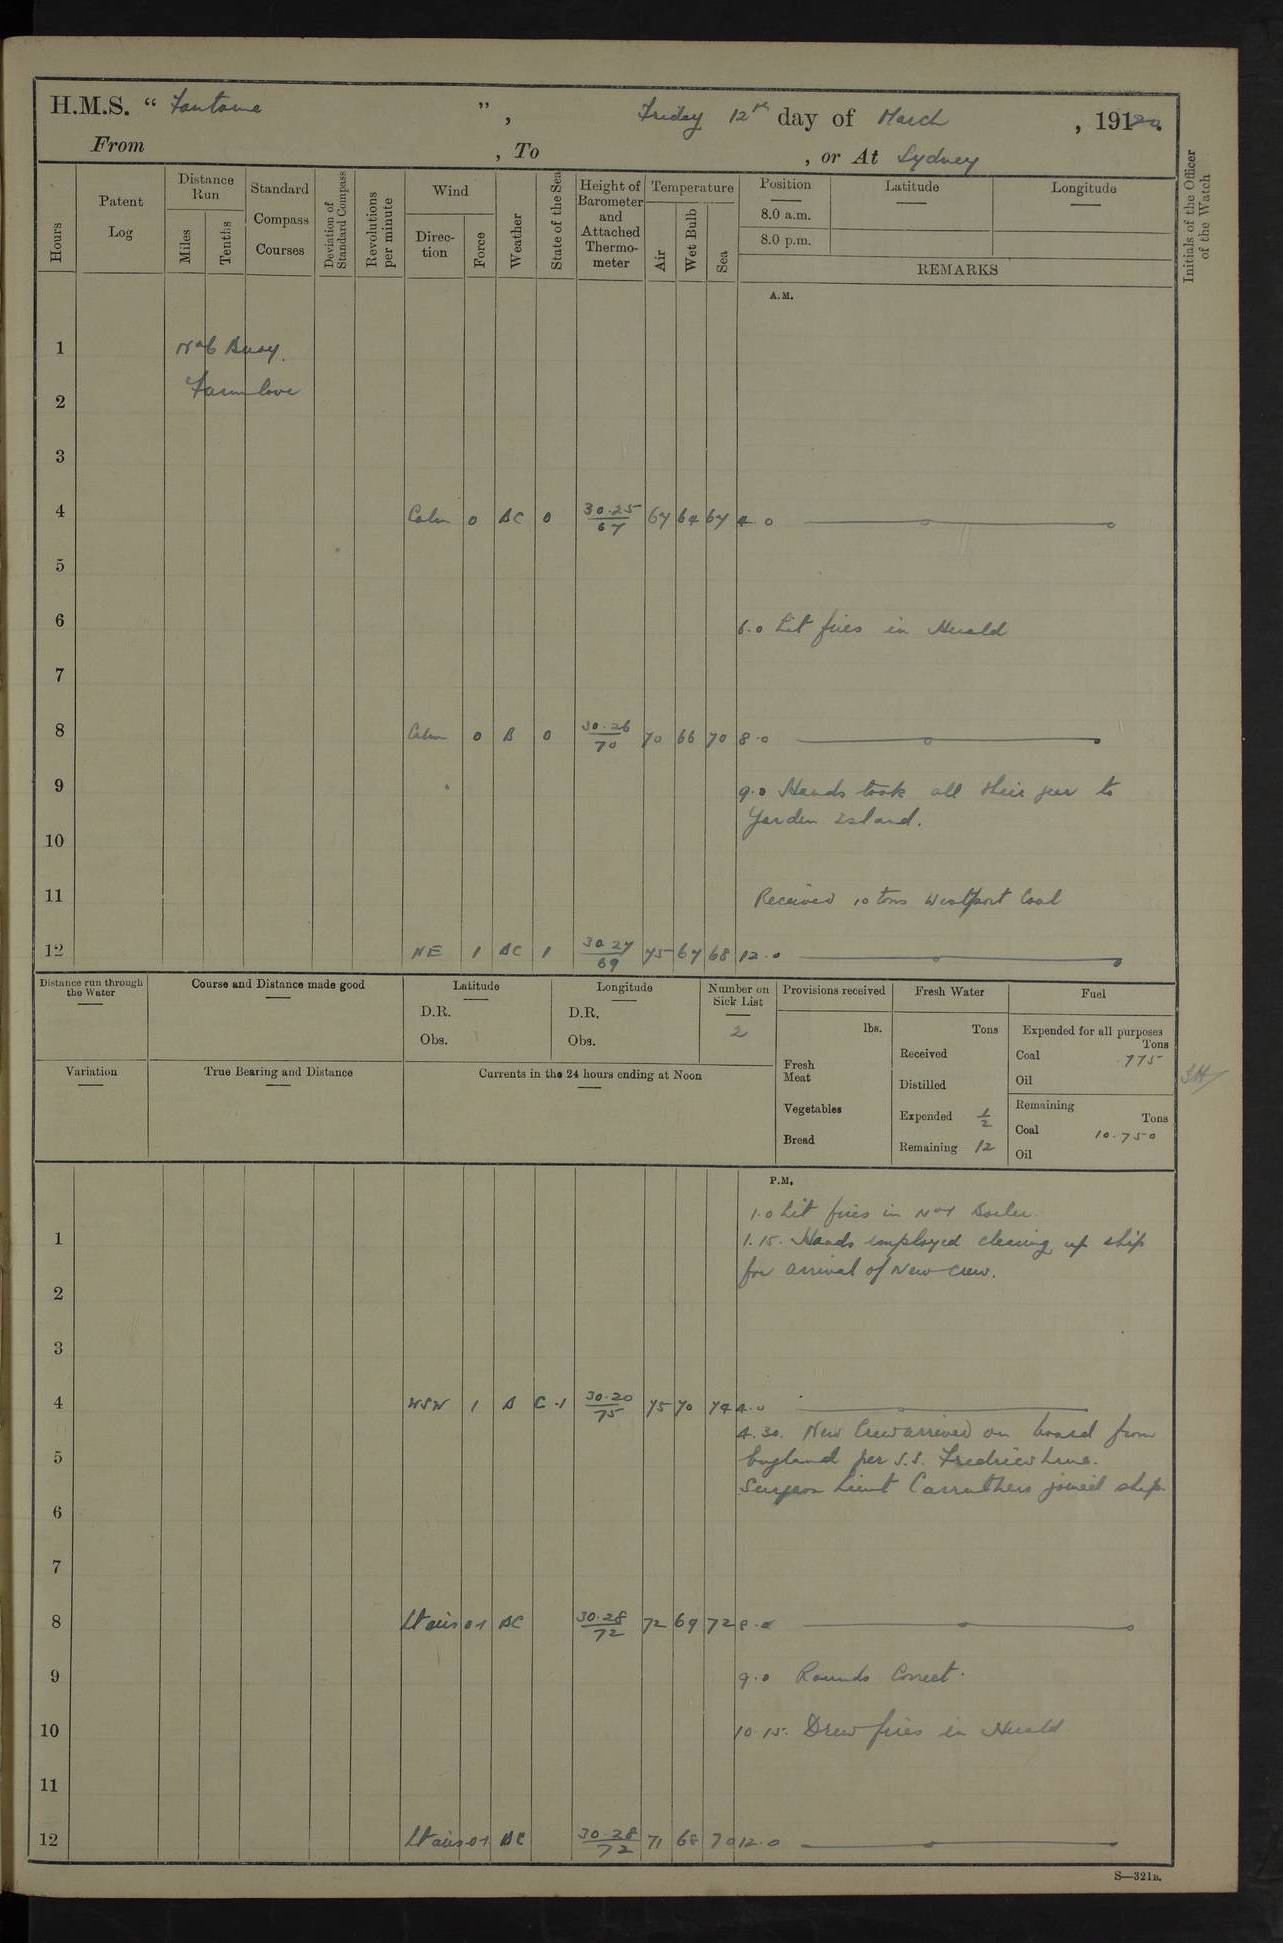 H.M.S. “ Fantome ”, Friday 12th day of March, 1920
From , To , or At Sydney
Hours
Patent Log
Distance Run
Miles
Tenths
Standard Compass Courses
Deviation of Standard Compass
Revolutions per minute
Wind
Direction
Force
Weather
State of the Sea
Height of Barometer and Attached Thermometer
Temperature
Air
Wet Bulb
Sea
Position
Latitude
Longitude
8.0 a.m.
8.0 p.m.
REMARKS
Initials of the Officer of the Watch
A.M.
1 No 6 Buoy.
2 Farm Cove
3
4 Calm 0 BC 0 30.25/67 67 64 67 4.0
5
6 6.0 Lit fires in Herald
7
8 Calm 0 B 0 30.26/70 70 66 70 8.0
9 9.0 Hands took all their gear to
Garden Island.
10
11 Received 10 tons Westport Coal
12 NE 1 BC 1 30.27/69 75 67 68 12.0
Distance run through the Water
Course and Distance made good
Latitude
D.R.
Obs.
Longitude
D.R.
Obs.
Number on Sick List
2
Provisions received
lbs.
Fresh Meat
Vegetables
Bread
Fresh Water
Tons
Received
Distilled
Expended 1/2
Remaining 12
Fuel
Expended for all purposes
Tons
Coal .775
Oil
Remaining
Tons
Coal 10.750
Oil
Variation
True Bearing and Distance
Currents in the 24 hours ending at Noon
P.M.
1.0 Lit fires in No 1 Boiler.
1 1.15. Hands employed cleaning up ship
for arrival of New crew.
2
3
4 WSW 1 B C.1 30.20/75 75 70 74 4.0
4.30. New Crew arrived on board from
5 England per S.S.
Surgeon Lieut Carruthers joined ship.
6
7
8 Lt airs 0.1 BC 30.28/72 72 69 72 8.0
9 9.0 Rounds Correct.
10 10.15. Drew fires in Herald
11
12 Lt airs 0.1 BC 30.28/72 71 68 70 12.0
S—321B.